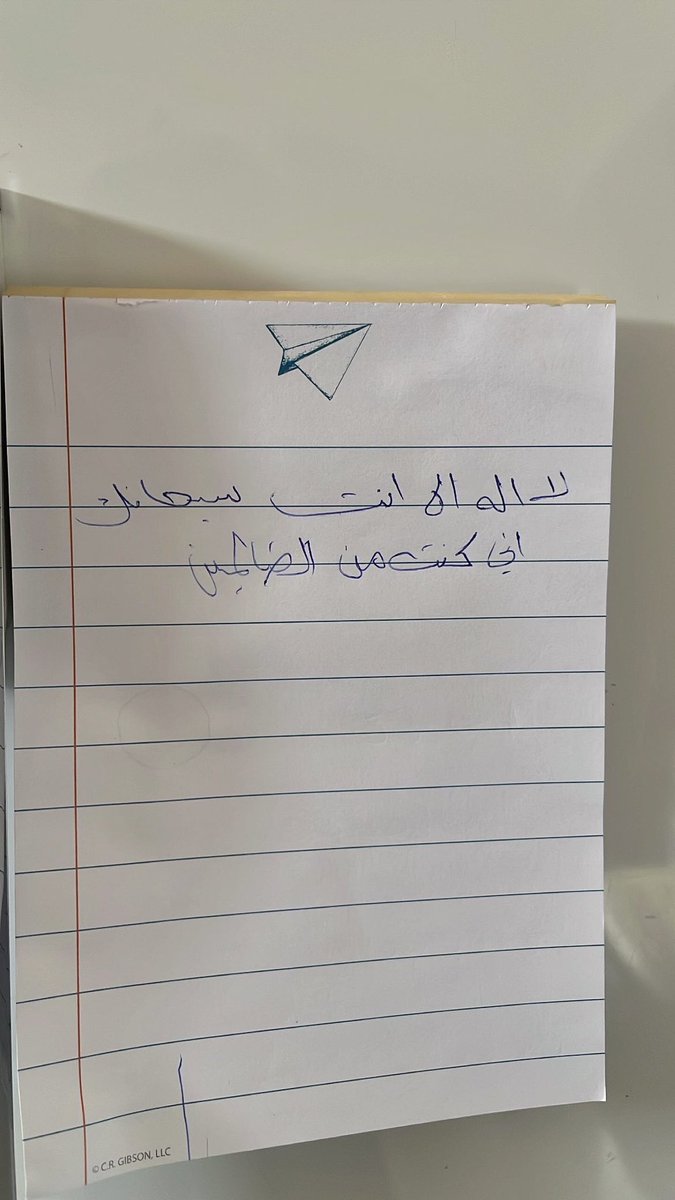 لا اله الا انت سبحانك
اني كنت من الضالمين
© C.R. GIBSON, LLC